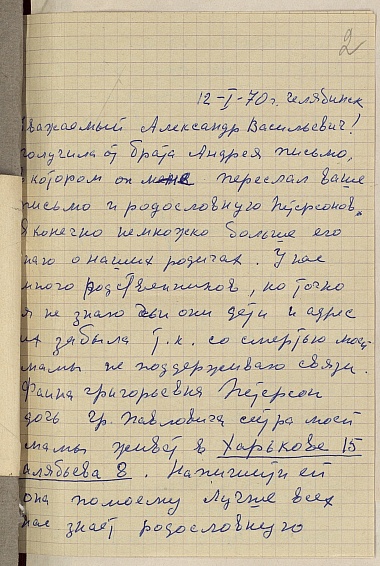 2
12-I-70г. Челябинск
Уважаемый Александр Васильевич!
Получила от брата Андрея письмо,
в котором он мне переслал ваше
письмо и родословную Пэтерсонов.
Я конечно немножко больше его
знаю о наших родичах. У нас
много родственников, но точно
я не знаю чьи они дети и адрес
их забыла т.к. со смертью моей
мамы не поддерживаю связи.
Фаина Григорьевна Пэтерсон
дочь Гр. Павловича сестра моей
мамы живёт в Харькове 15
Алябьева 8. Напишите ей
она помоему лучше всех
нас знает родословную